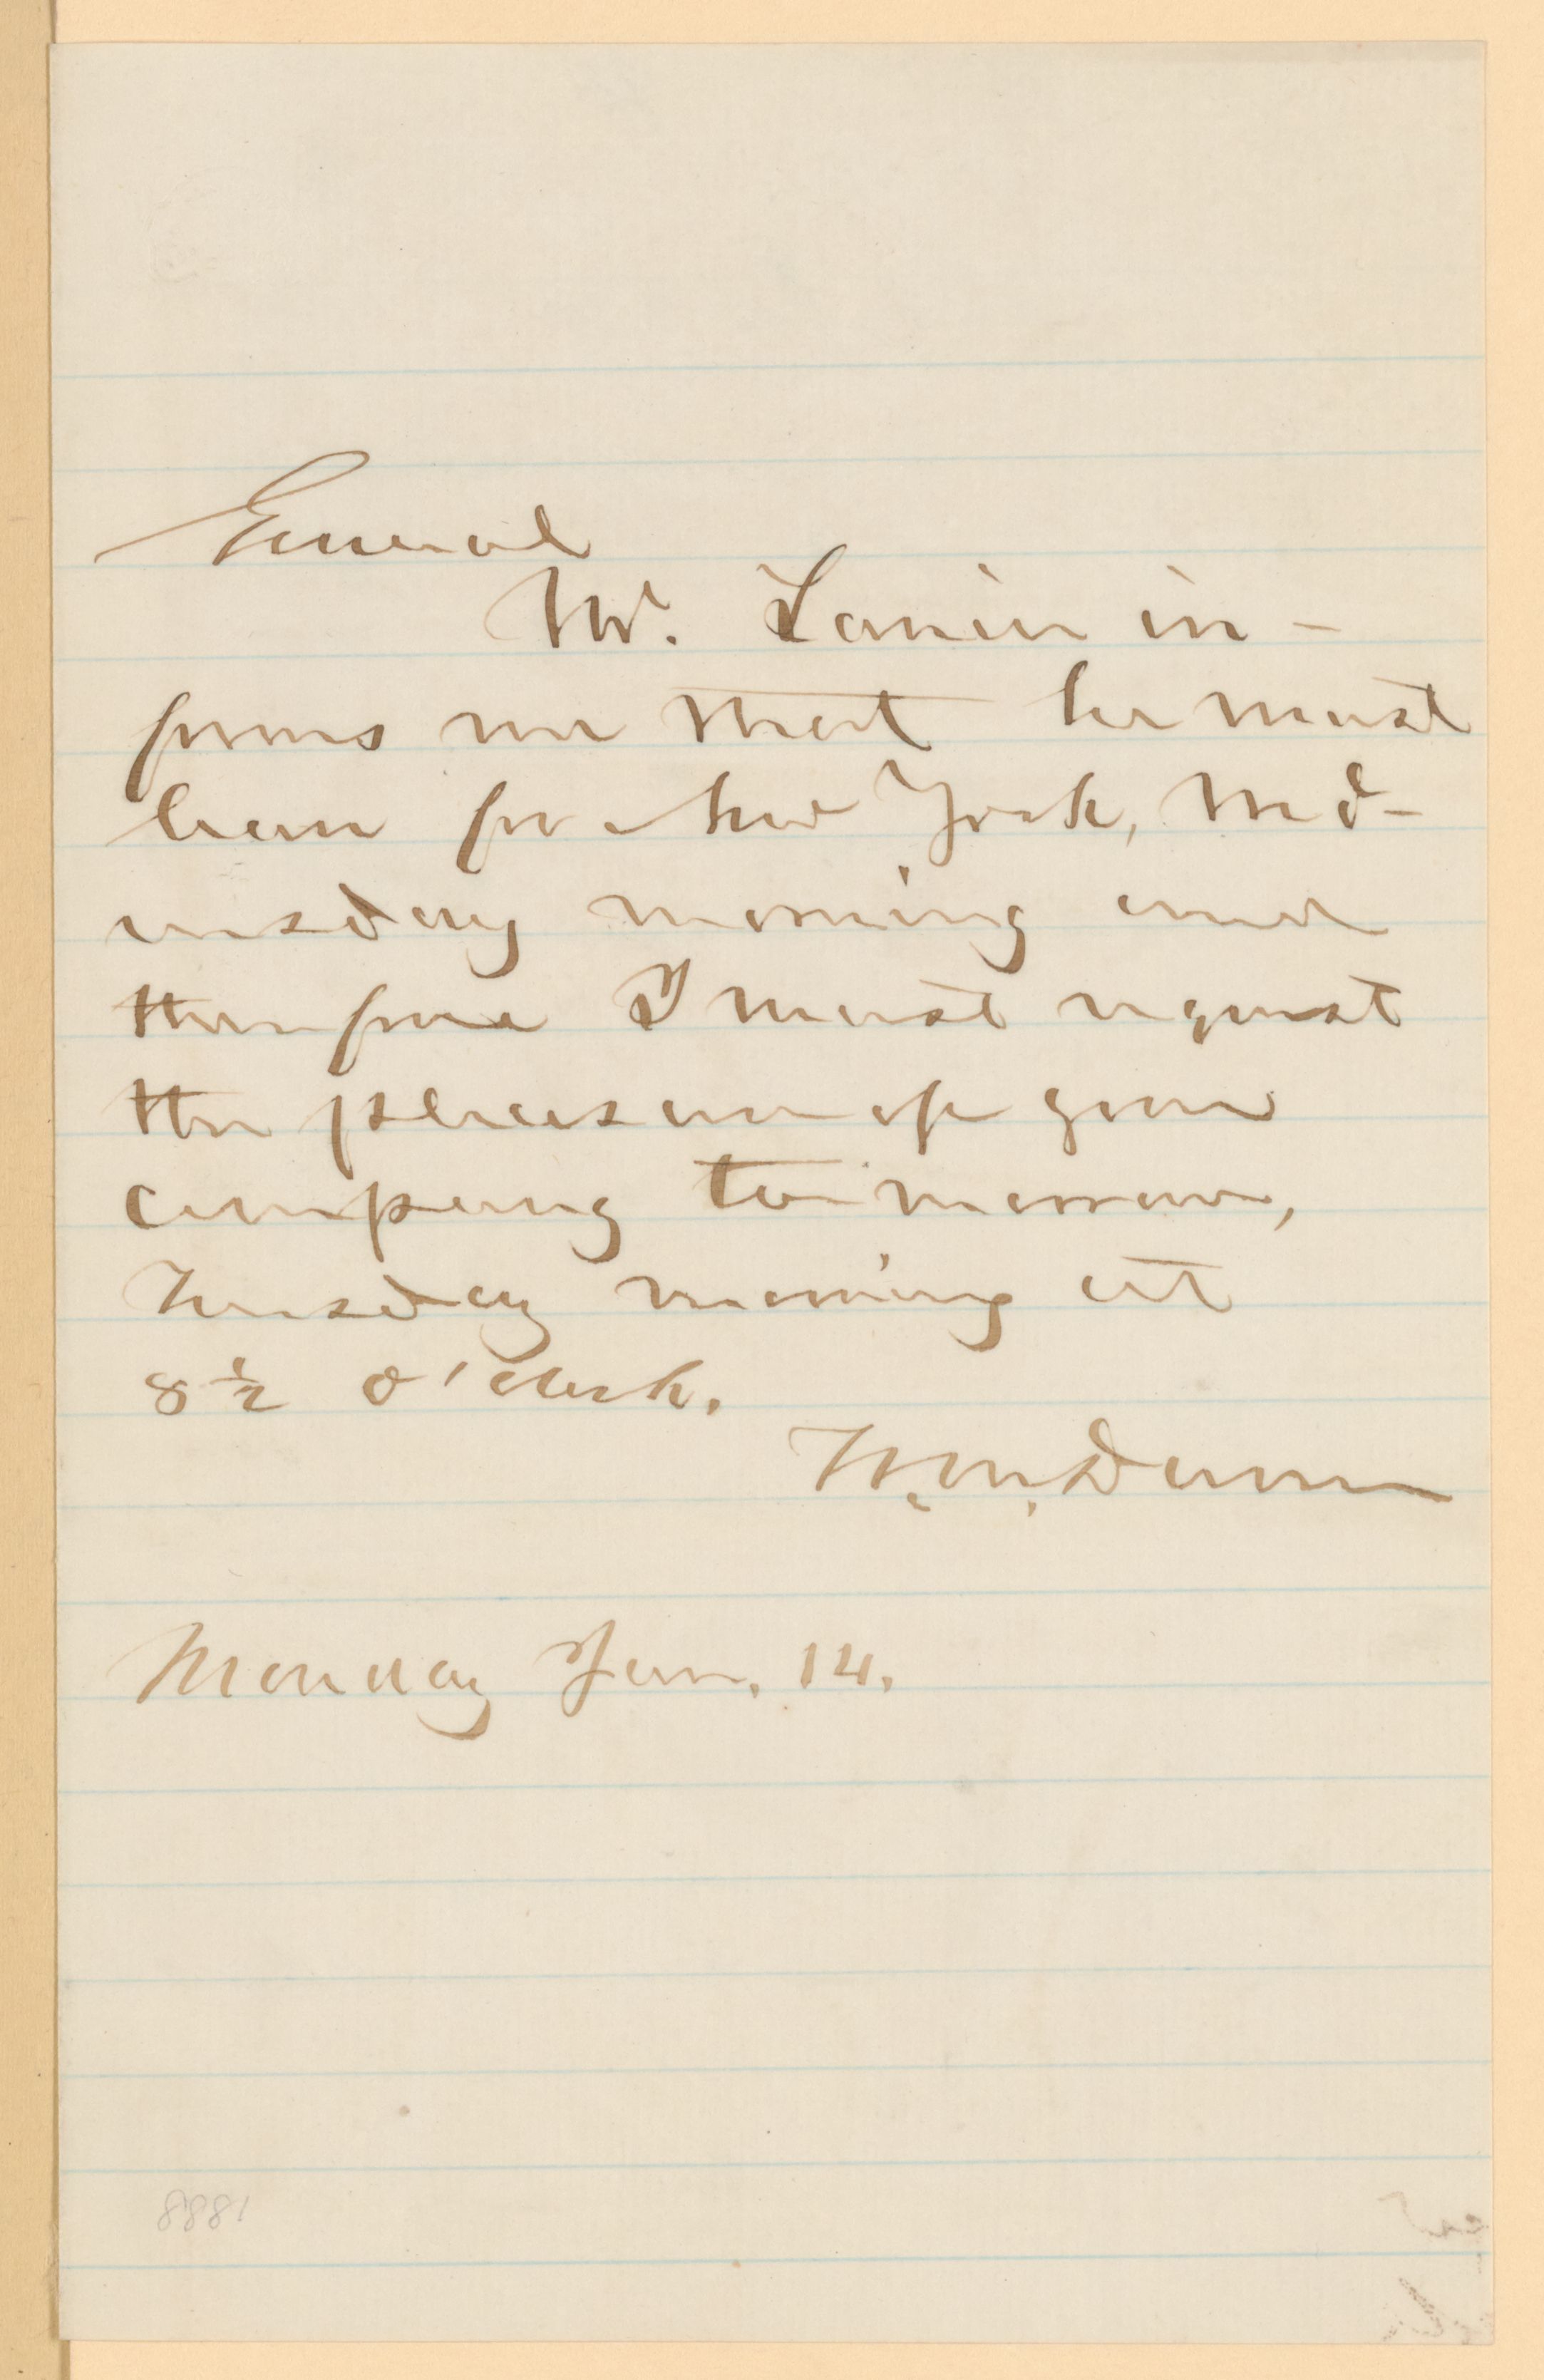 General
Mr. Lanier in-
forms me that he must
leave for New York, Wed-
nesday morning and
therefore I must request
the pleasure of your
company to-morrow,
Tuesday morning at
8 ½ o'clock.
W. M. Dunn
Monday Jan. 14.
8881